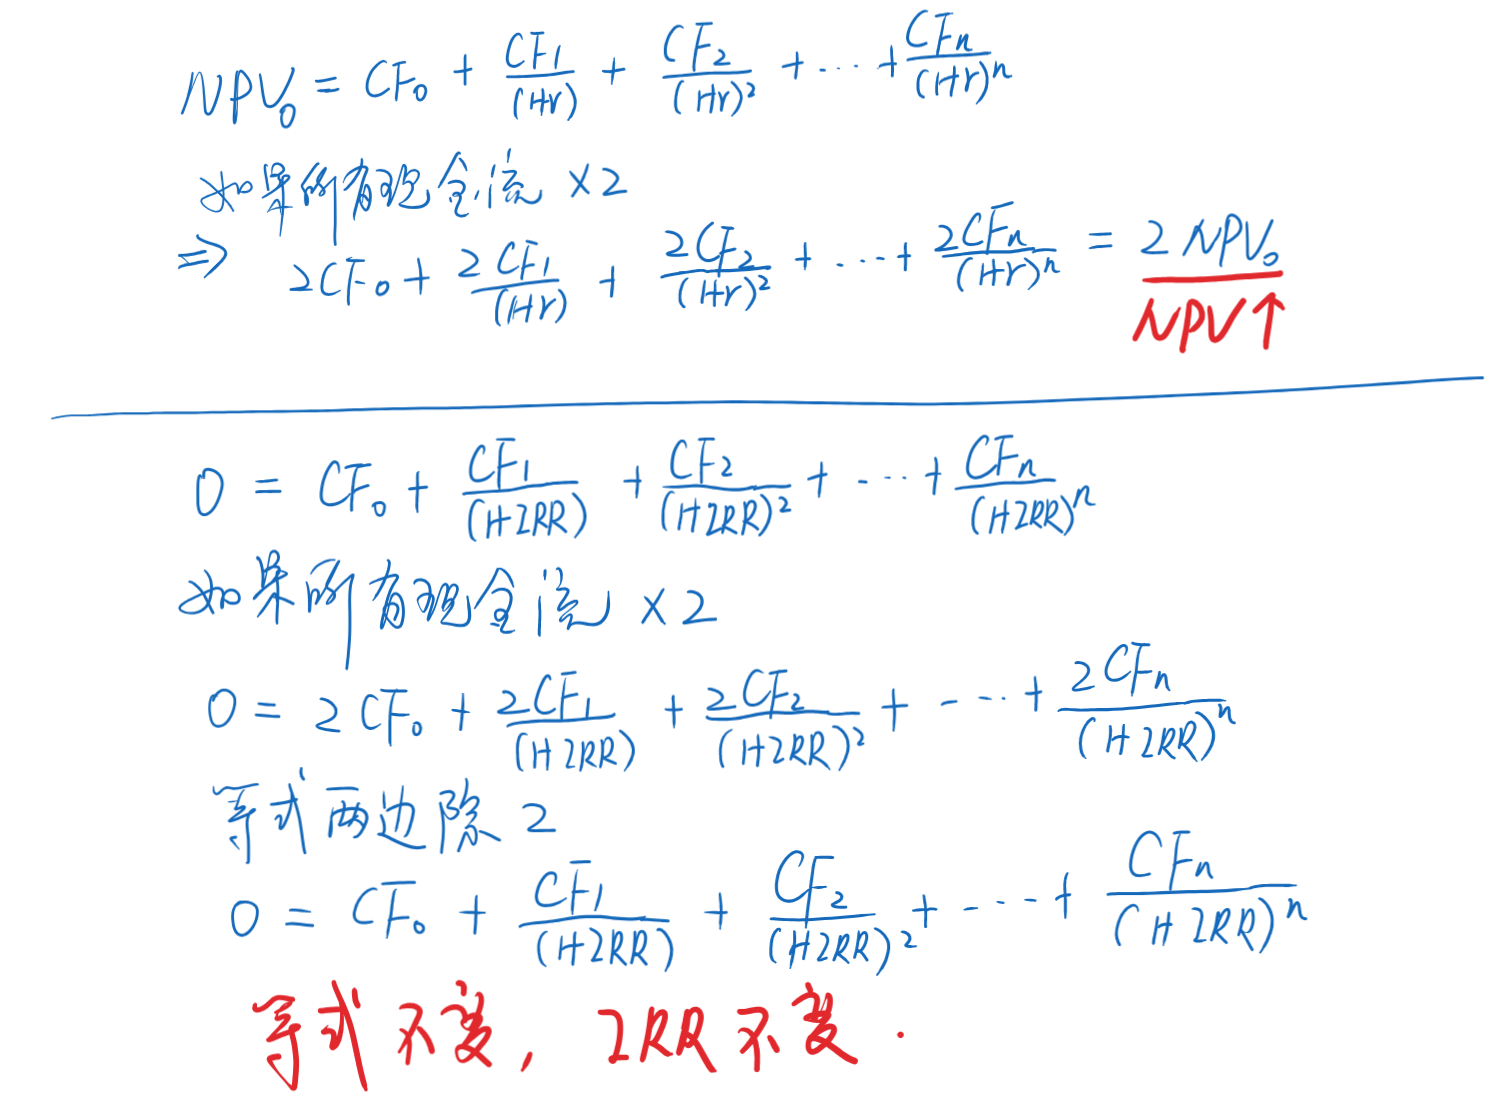 NPV₀ = CF₀ + CF₁/(1+r) + CF₂/(1+r)² + ... + CFn/(1+r)ⁿ
如果所有现金流 ×2
⇒ 2CF₀ + 2CF₁/(1+r) + 2CF₂/(1+r)² + ... + 2CFn/(1+r)ⁿ = 2NPV₀
NPV↑
0 = CF₀ + CF₁/(1+IRR) + CF₂/(1+IRR)² + ... + CFn/(1+IRR)ⁿ
如果所有现金流 ×2
0 = 2CF₀ + 2CF₁/(1+IRR) + 2CF₂/(1+IRR)² + ... + 2CFn/(1+IRR)ⁿ
等式两边除 2
0 = CF₀ + CF₁/(1+IRR) + CF₂/(1+IRR)² + ... + CFn/(1+IRR)ⁿ
等式不变, IRR不变.